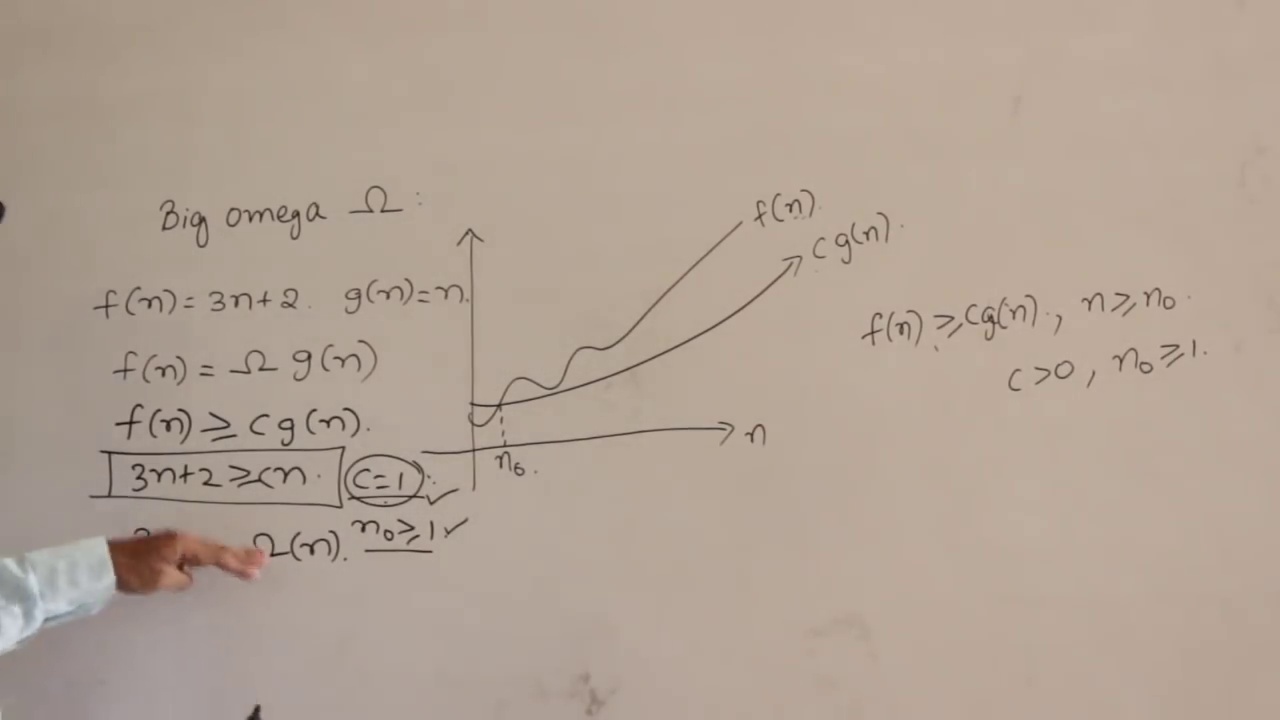 Big omega Ω :
f(n) = 3n+2. g(n) = n.
f(n) = Ω g(n)
f(n) ≥ c g(n).
3n+2 ≥ cn. c=1 ✓
Ω(n). n₀ ≥ 1 ✓
f(n).
c g(n).
n
n₀.
f(n) ≥ c g(n)., n ≥ n₀.
c > 0, n₀ ≥ 1.